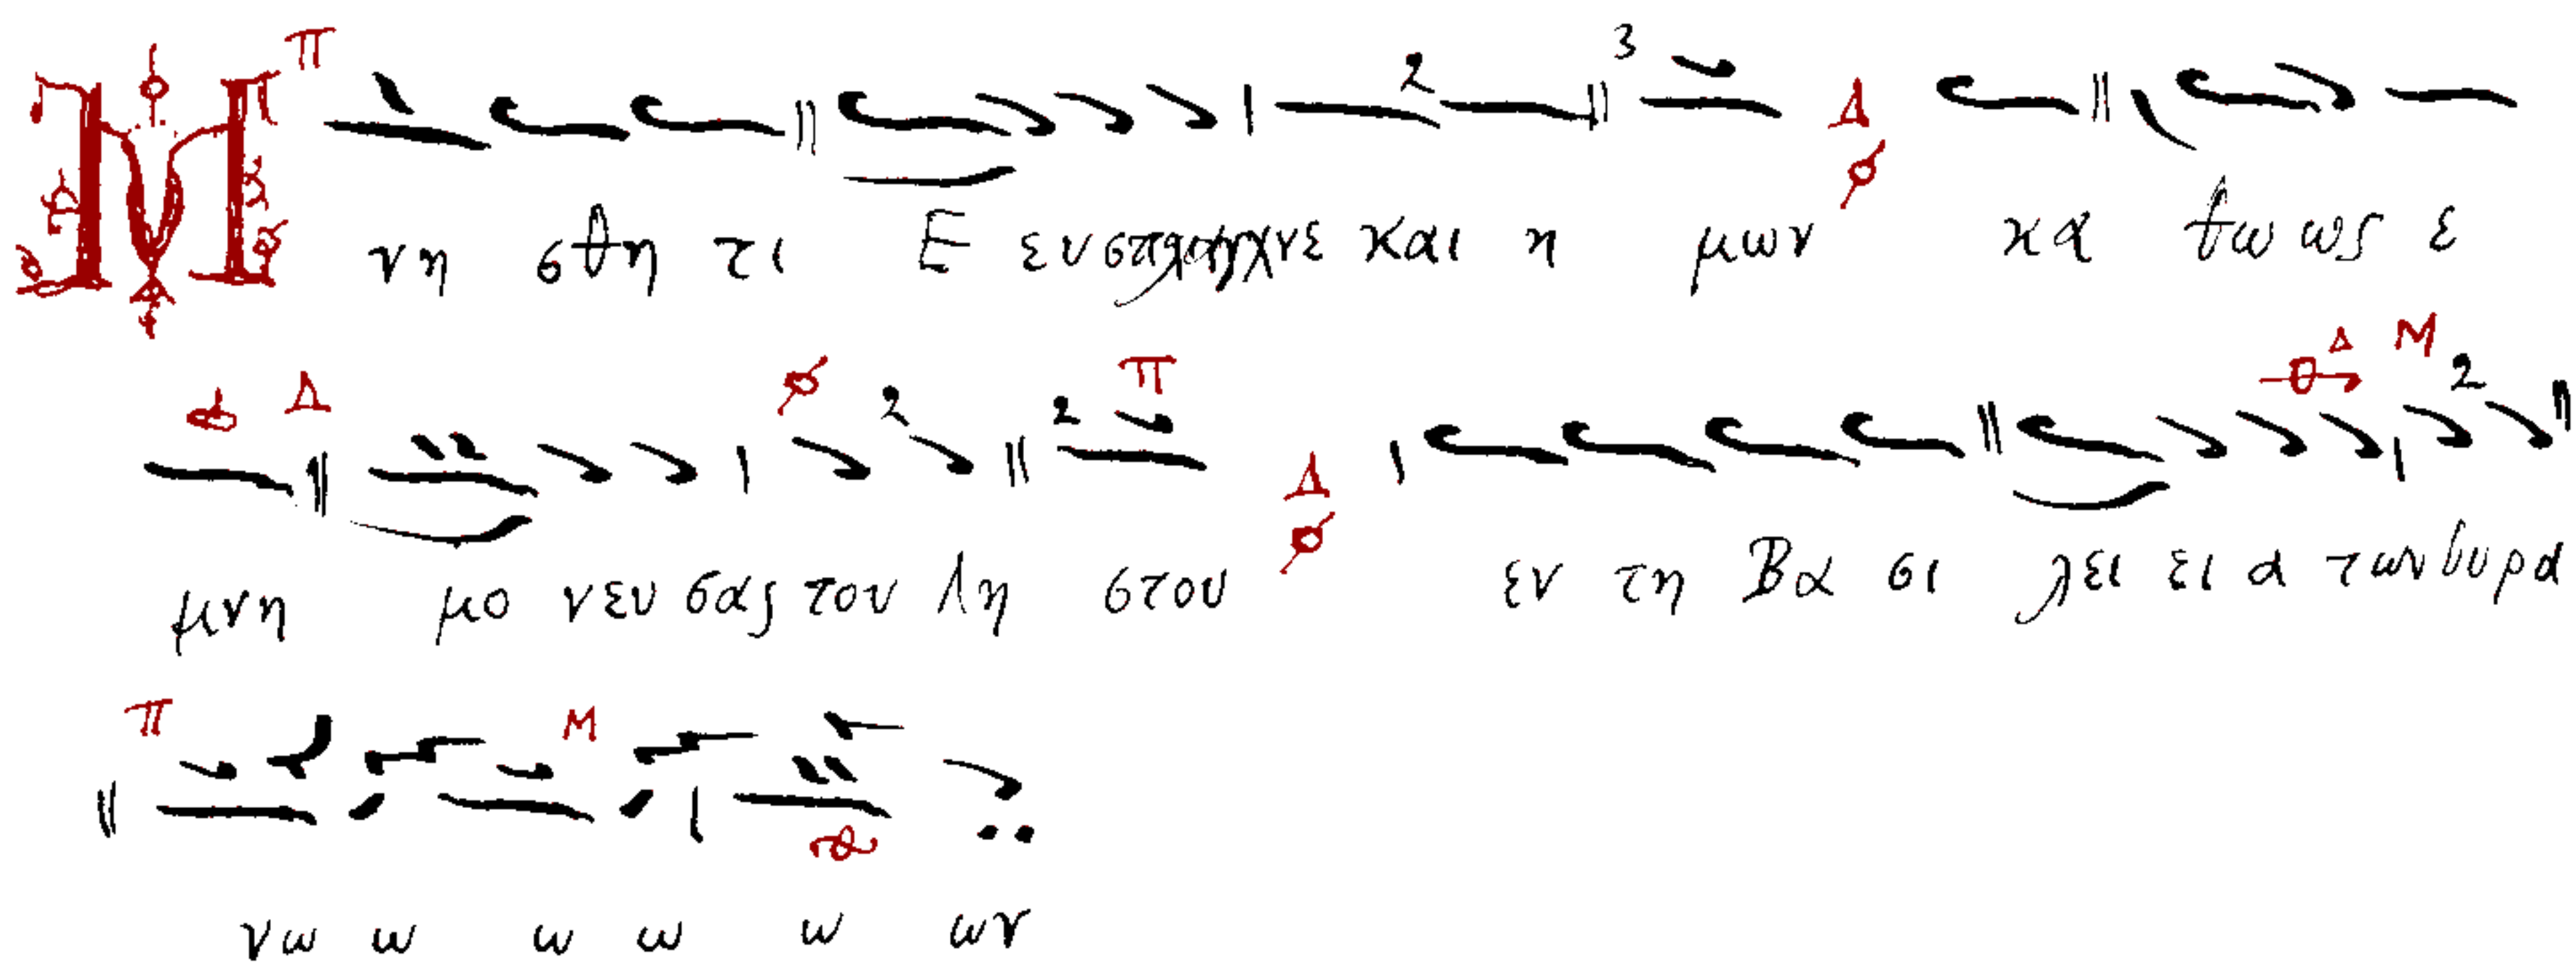 Μ νη σθη τι Ε ευσπλαγχνε και η μων κα θω ως ε
μνη μο νευ σας του λη στου εν τη Βα σι λει ει α των ουρα
νω ω ω ω ω ων